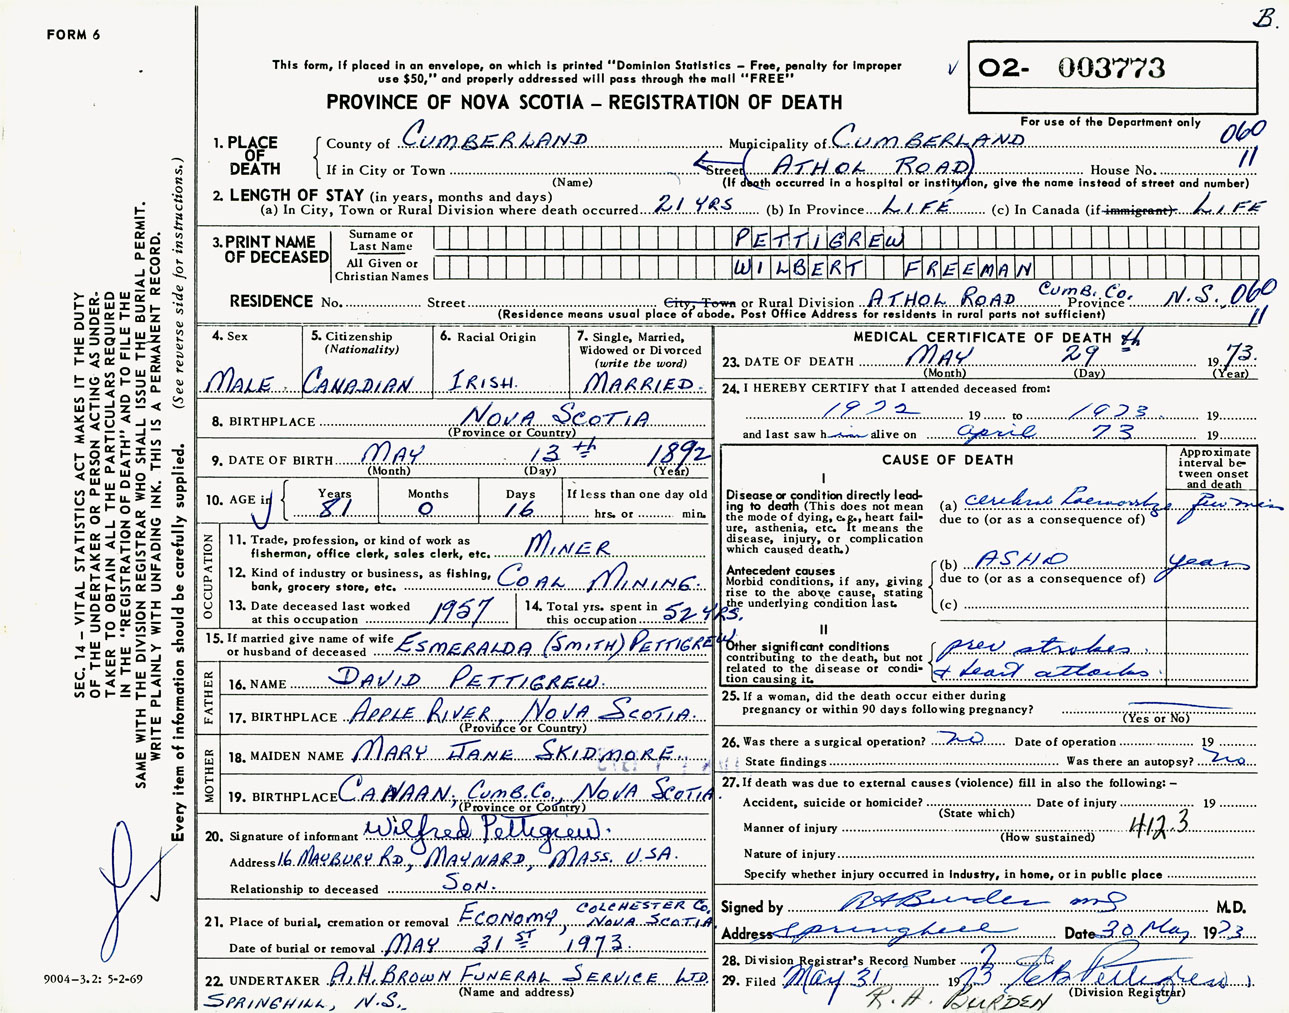 B.
FORM 6
This form, if placed in an envelope, on which is printed "Dominion Statistics – Free, penalty for improper
use $50," and properly addressed will pass through the mail "FREE"
PROVINCE OF NOVA SCOTIA – REGISTRATION OF DEATH
O2- 003773
For use of the Department only
1. PLACE OF DEATH
County of CUMBERLAND Municipality of CUMBERLAND 060
If in City or Town Street (ATHOL ROAD) House No. 11
(Name) (If death occurred in a hospital or institution, give the name instead of street and number)
2. LENGTH OF STAY (in years, months and days)
(a) In City, Town or Rural Division where death occurred 21 YRS (b) In Province LIFE (c) In Canada (if immigrant) LIFE
3. PRINT NAME OF DECEASED
Surname or Last Name PETTIGREW
All Given or Christian Names WILBERT FREEMAN
RESIDENCE No. Street City, Town or Rural Division ATHOL ROAD CUMB. CO. Province N.S. 060
(Residence means usual place of abode. Post Office Address for residents in rural parts not sufficient) 11
4. Sex
MALE
5. Citizenship
(Nationality)
CANADIAN
6. Racial Origin
IRISH.
7. Single, Married,
Widowed or Divorced
(write the word)
MARRIED.
8. BIRTHPLACE NOVA SCOTIA
(Province or Country)
9. DATE OF BIRTH MAY 13th 1892
(Month) (Day) (Year)
10. AGE if
Years Months Days If less than one day old
81 0 16 hrs. or min.
OCCUPATION
11. Trade, profession, or kind of work as
fisherman, office clerk, sales clerk, etc. MINER
12. Kind of industry or business, as fishing,
bank, grocery store, etc. COAL MINING.
13. Date deceased last worked
at this occupation 1957
14. Total yrs. spent in
this occupation 52 YRS.
15. If married give name of wife
or husband of deceased ESMERALDA (SMITH) PETTIGREW
FATHER
16. NAME DAVID PETTIGREW.
17. BIRTHPLACE APPLE RIVER, NOVA SCOTIA.
(Province or Country)
MOTHER
18. MAIDEN NAME MARY JANE SKIDMORE
19. BIRTHPLACE CANAAN, CUMB. CO., NOVA SCOTIA.
(Province or Country)
20. Signature of informant Wilfred Pettigrew.
Address 16 MAYBURY RD, MAYNARD, MASS. USA.
Relationship to deceased SON.
21. Place of burial, cremation or removal ECONOMY, COLCHESTER CO, NOVA SCOTIA
Date of burial or removal MAY 31ST 1973
22. UNDERTAKER A.H. BROWN FUNERAL SERVICE LTD.
(Name and address)
SPRINGHILL, N.S.
MEDICAL CERTIFICATE OF DEATH
23. DATE OF DEATH MAY 29th 1973.
(Month) (Day) (Year)
24. I HEREBY CERTIFY that I attended deceased from:
1972 19 to 1973 19
and last saw him alive on April 73 19
CAUSE OF DEATH
Approximate
interval be-
tween onset
and death
I
Disease or condition directly lead-
ing to death (This does not mean
the mode of dying, e.g., heart fail-
ure, asthenia, etc. It means the
disease, injury, or complication
which caused death.)
(a) cerebral haemorrhage few min
due to (or as a consequence of)
Antecedent causes
Morbid conditions, if any, giving
rise to the above cause, stating
the underlying condition last.
(b) ASHD years
due to (or as a consequence of)
(c)
II
Other significant conditions
contributing to the death, but not
related to the disease or condi-
tion causing it.
prev strokes
+ heart attacks
25. If a woman, did the death occur either during
pregnancy or within 90 days following pregnancy?
(Yes or No)
26. Was there a surgical operation? no Date of operation 19
State findings Was there an autopsy? no
27. If death was due to external causes (violence) fill in also the following: –
Accident, suicide or homicide? Date of injury 19
(State which)
Manner of injury 412.3
(How sustained)
Nature of injury
Specify whether injury occurred in industry, in home, or in public place
Signed by RABurden MD M.D.
Address Springhill Date 30 May 1973
28. Division Registrar's Record Number 7
29. Filed May 31 1973 Pettigrew
(Division Registrar)
R.A. BURDEN
SEC. 14 – VITAL STATISTICS ACT MAKES IT THE DUTY
OF THE UNDERTAKER OR PERSON ACTING AS UNDER-
TAKER TO OBTAIN ALL THE PARTICULARS REQUIRED
IN THE "REGISTRATION OF DEATH" AND TO FILE THE
SAME WITH THE DIVISION REGISTRAR WHO SHALL ISSUE THE BURIAL PERMIT.
WRITE PLAINLY WITH UNFADING INK. THIS IS A PERMANENT RECORD.
Every item of information should be carefully supplied. (See reverse side for instructions.)
9004-3.2: 5-2-69